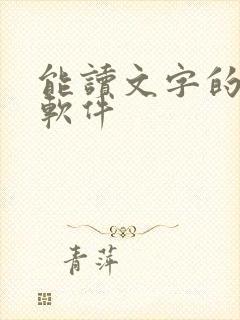 能讀文字的
軟件
青萍